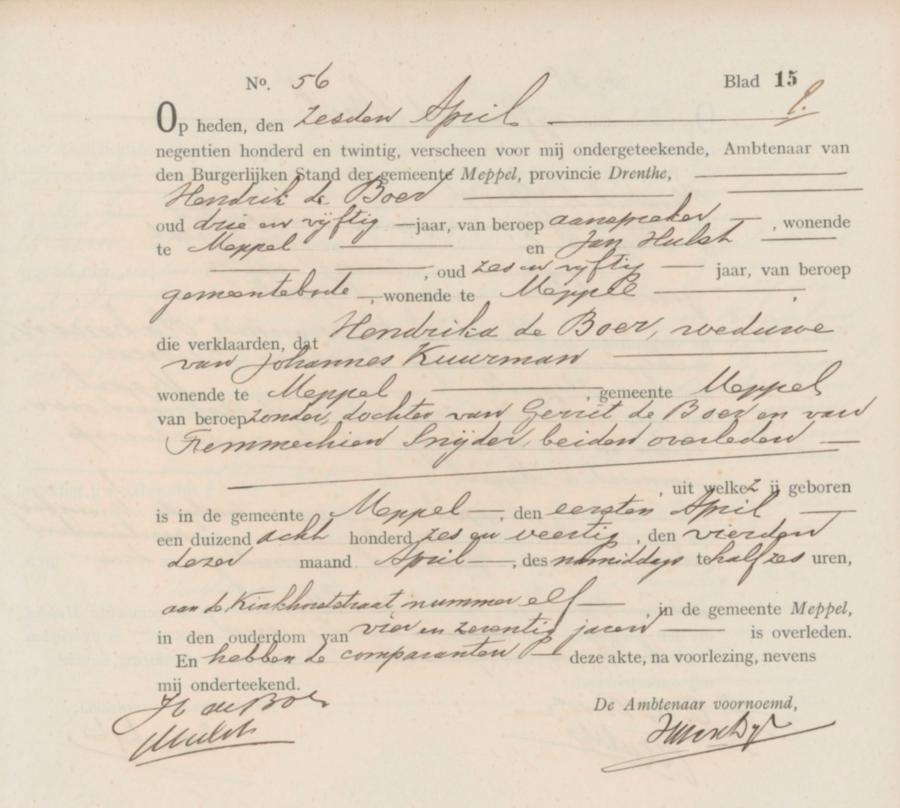 No. 56 Blad 15
Op heden, den zesden April
negentien honderd en twintig, verscheen voor mij ondergeteekende, Ambtenaar van
den Burgerlijken Stand der gemeente Meppel, provincie Drenthe,
Hendrik de Boer
oud drie en vijftig jaar, van beroep aanspreker, wonende
te Meppel en Jan Hulst
, oud zes en vijftig jaar, van beroep
gemeentebode, wonende te Meppel,
die verklaarden, dat Hendrika de Boer, weduwe
van Johannes Kuurman
wonende te Meppel, gemeente Meppel
van beroep zonder, dochter van Gerrit de Boer en van
Femmechien Snijder, beiden overleden
, uit welke zij geboren
is in de gemeente Meppel, den eersten April
een duizend acht honderd zes en veertig, den vierden
dezer maand April, des namiddags te half zes uren,
aan de Kinkhorststraat nummer elf, in de gemeente Meppel,
in den ouderdom van vier en zeventig jaren is overleden.
En hebben de comparanten deze akte, na voorlezing, nevens
mij onderteekend.
H de Boer De Ambtenaar voornoemd,
JHulst